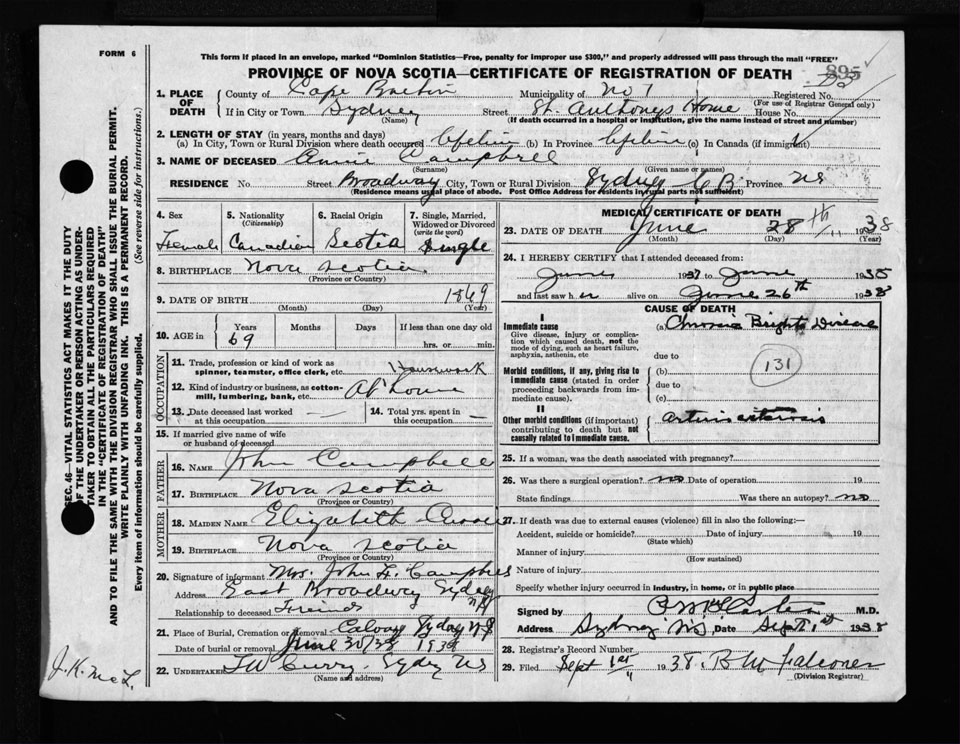 FORM 6
This form if placed in an envelope, marked "Dominion Statistics—Free, penalty for improper use $300," and properly addressed will pass through the mail "FREE"
895
PROVINCE OF NOVA SCOTIA—CERTIFICATE OF REGISTRATION OF DEATH
1. PLACE OF DEATH
County of Cape Breton Municipality of No 1 Registered No.
(For use of Registrar General only)
If in City or Town Sydney Street St. Anthonys Home House No.
(Name) (If death occurred in a hospital or institution, give the name instead of street and number)
2. LENGTH OF STAY (in years, months and days)
(a) In City, Town or Rural Division where death occurred Lifetime (b) In Province Lifetime (c) In Canada (if immigrant)
3. NAME OF DECEASED Annie Campbell
(Surname) (Given name or names)
RESIDENCE No. Street Broadway City, Town or Rural Division Sydney C B. Province NS
(Residence means usual place of abode. Post Office Address for residents in rural parts not sufficient)
4. Sex Female
5. Nationality (Citizenship) Canadian
6. Racial Origin Scotia
7. Single, Married, Widowed or Divorced (write the word) Single
8. BIRTHPLACE Nova Scotia
(Province or Country)
9. DATE OF BIRTH 1869
(Month) (Day) (Year)
10. AGE in Years 69 Months Days If less than one day old hrs. or min.
OCCUPATION
11. Trade, profession or kind of work as spinner, teamster, office clerk, etc. Housework
12. Kind of industry or business, as cotton-mill, lumbering, bank, etc. At home
13. Date deceased last worked at this occupation —
14. Total yrs. spent in this occupation —
15. If married give name of wife or husband of deceased
FATHER
16. NAME John Campbell
17. BIRTHPLACE Nova Scotia
(Province or Country)
MOTHER
18. MAIDEN NAME Elizabeth
19. BIRTHPLACE Nova Scotia
(Province or Country)
20. Signature of informant Mrs. John H. Campbell
Address East Broadway Sydney NS
Relationship to deceased Friend
21. Place of Burial, Cremation or Removal Calvary Sydney N S
Date of burial or removal June 30/38 1938
22. UNDERTAKER T W Curry. Sydney NS
(Name and address)
MEDICAL CERTIFICATE OF DEATH
23. DATE OF DEATH June 28th 1938
(Month) (Day) (Year)
24. I HEREBY CERTIFY that I attended deceased from:
June 1937 to June 1938
and last saw her alive on June 26th 1938
CAUSE OF DEATH
I
Immediate cause
Give disease, injury or complication which caused death, not the mode of dying, such as heart failure, asphyxia, asthenia, etc
(a) Chronic Brights Disease
due to
131
Morbid conditions, if any, giving rise to immediate cause (stated in order proceeding backwards from immediate cause).
(b)
due to
(c)
II
Other morbid conditions (if important) contributing to death but not causally related to immediate cause.
25. If a woman, was the death associated with pregnancy?
26. Was there a surgical operation? no Date of operation 19
State findings Was there an autopsy? no
27. If death was due to external causes (violence) fill in also the following:—
Accident, suicide or homicide? Date of injury 19
(State which)
Manner of injury
(How sustained)
Nature of injury
Specify whether injury occurred in industry, in home, or in public place
Signed by M.D.
Address Sydney N.S. Date Sept 1st 1938
28. Registrar's Record Number
29. Filed Sept 1st 1938. B M Falconer
(Division Registrar)
SEC. 46—VITAL STATISTICS ACT MAKES IT THE DUTY
OF THE UNDERTAKER OR PERSON ACTING AS UNDER-
TAKER TO OBTAIN ALL THE PARTICULARS REQUIRED
IN THE "CERTIFICATE OF REGISTRATION OF DEATH"
AND TO FILE THE SAME WITH THE DIVISION REGISTRAR WHO SHALL ISSUE THE BURIAL PERMIT.
WRITE PLAINLY WITH UNFADING INK. THIS IS A PERMANENT RECORD.
Every item of information should be carefully supplied. (See reverse side for instructions.)
J. K. McL.